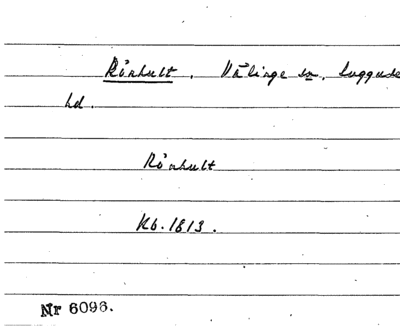 Rönhult. Välinge sn, Luggude
hd.
Rönhult
Kb. 1813.
Nr 6096.